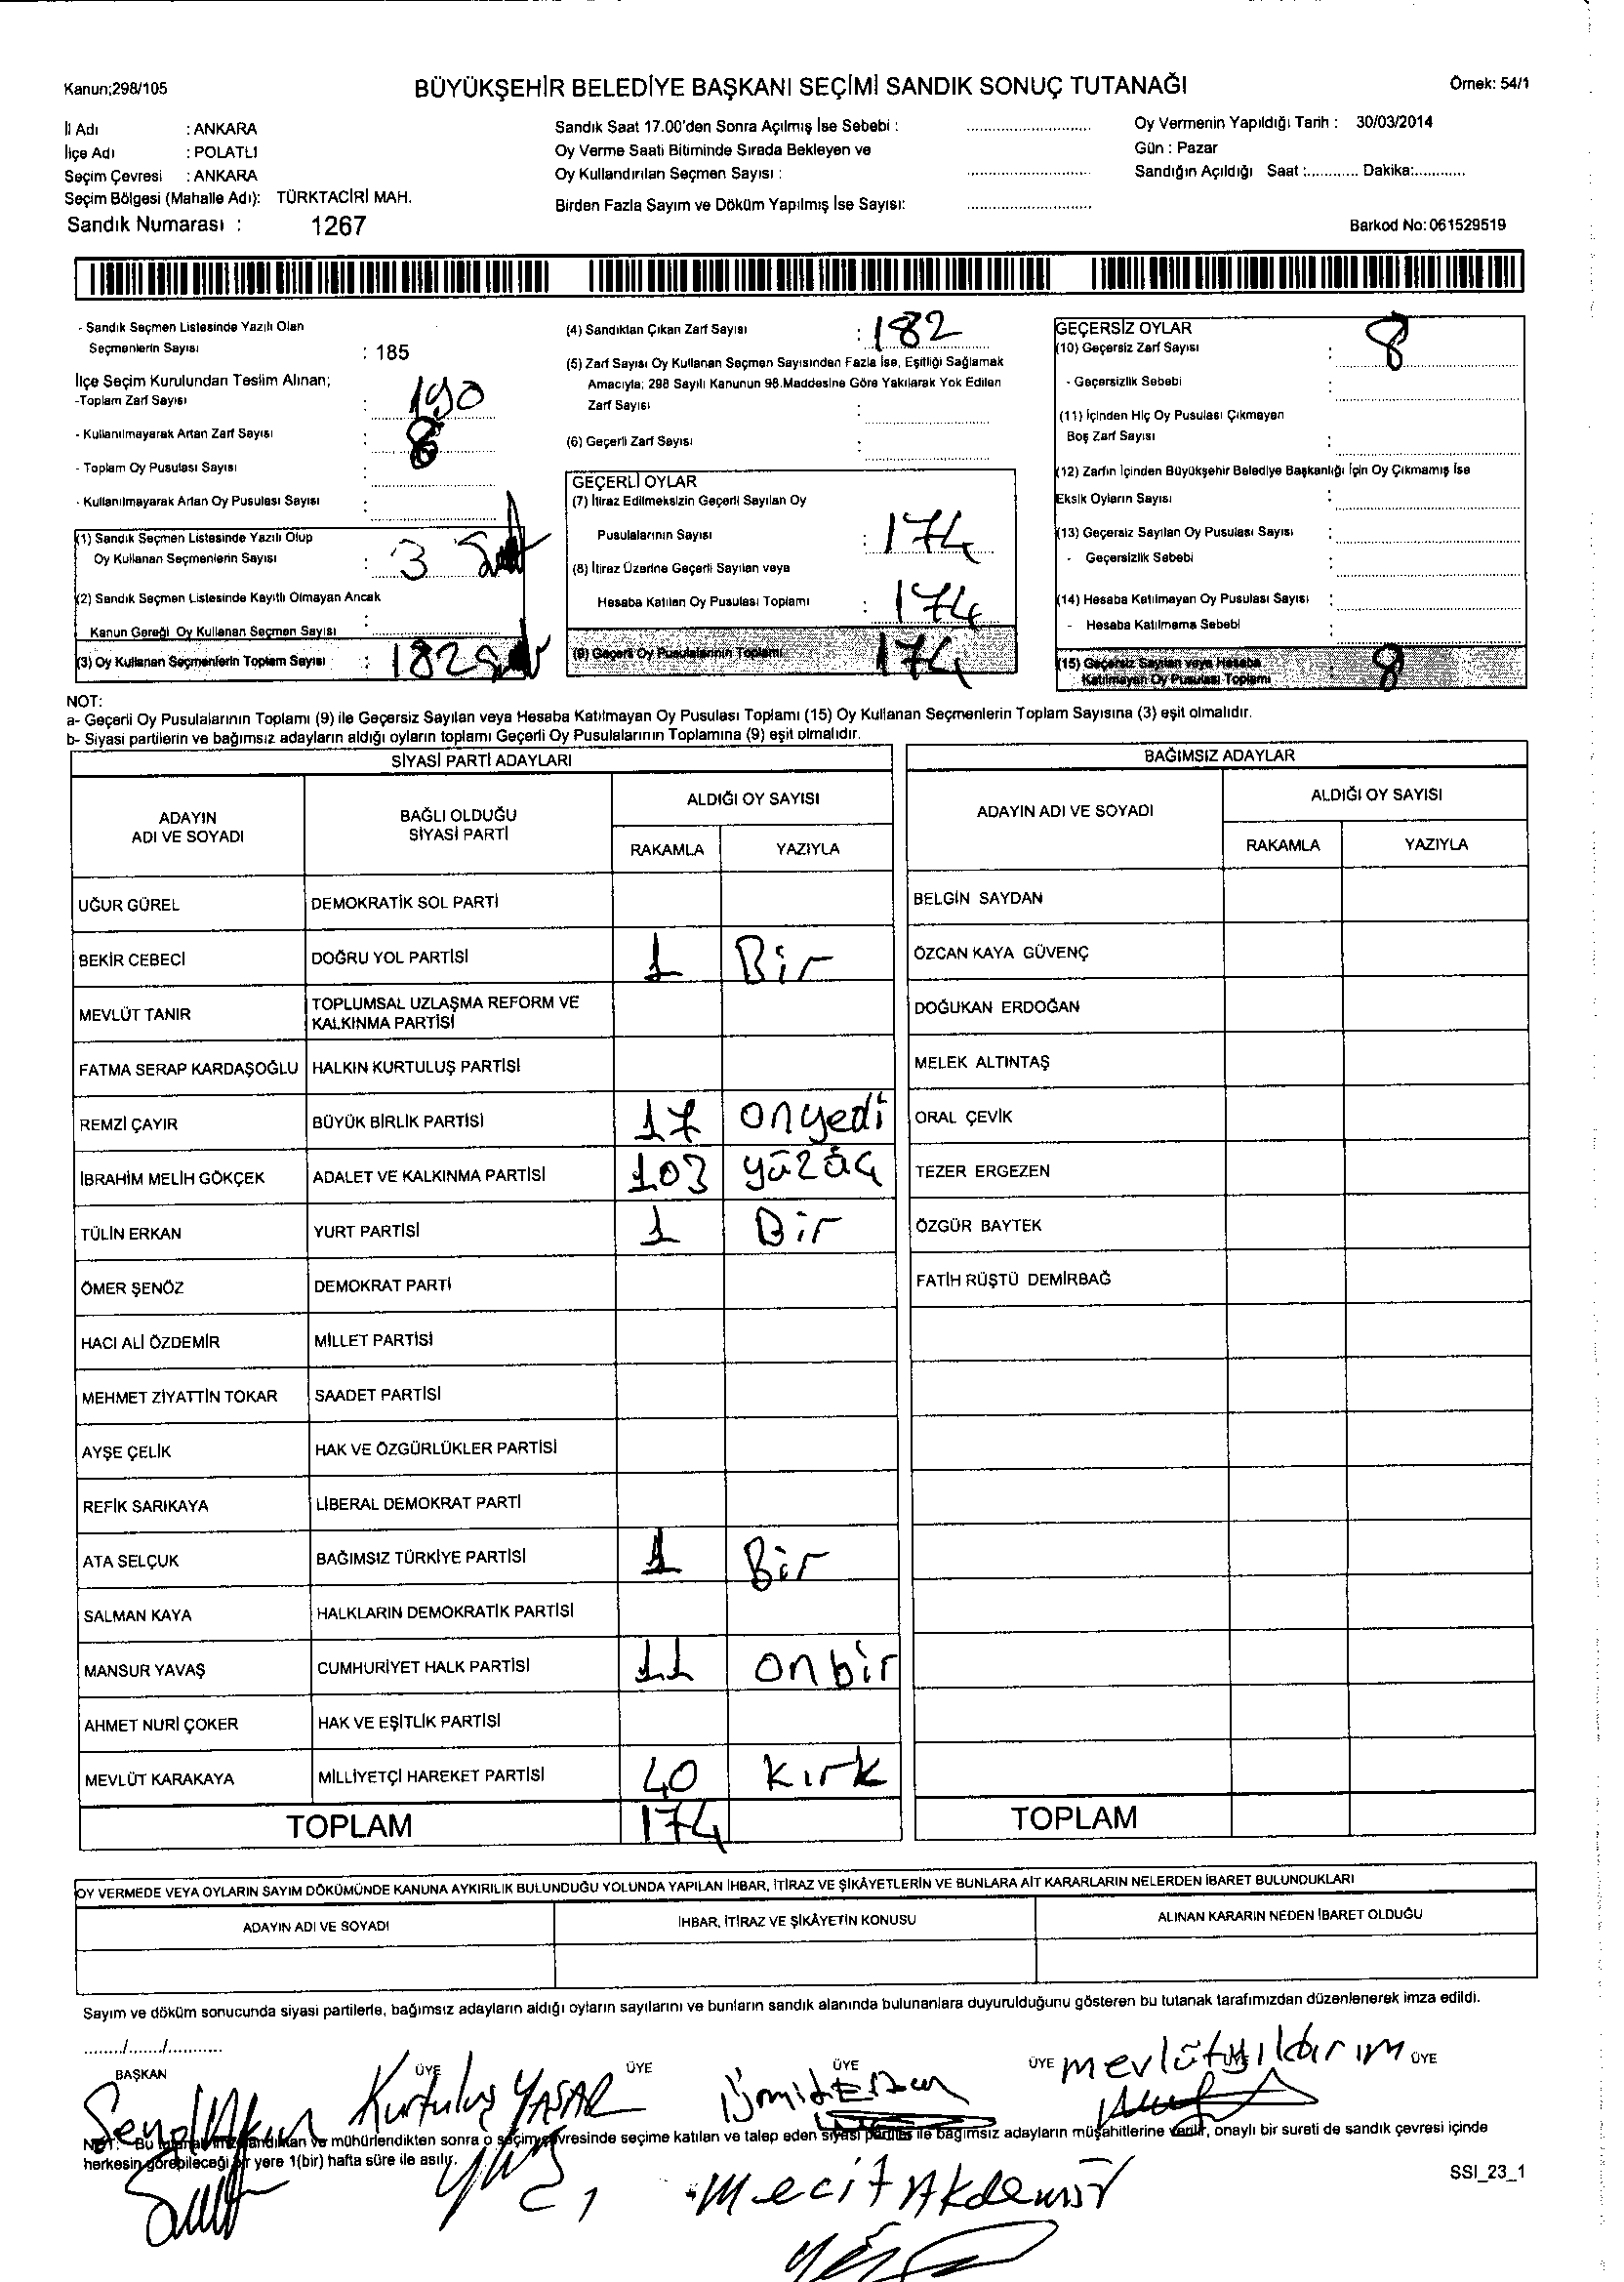 Kanun;298/105
BÜYÜKŞEHİR BELEDİYE BAŞKANI SEÇİMİ SANDIK SONUÇ TUTANAĞI
Örnek: 54/1
İl Adı : ANKARA
İlçe Adı : POLATLI
Seçim Çevresi : ANKARA
Seçim Bölgesi (Mahalle Adı): TÜRKTACİRİ MAH.
Sandık Numarası : 1267
Sandık Saat 17.00'den Sonra Açılmış İse Sebebi :
Oy Verme Saati Bitiminde Sırada Bekleyen ve
Oy Kullandırılan Seçmen Sayısı :
Birden Fazla Sayım ve Döküm Yapılmış İse Sayısı:
Oy Vermenin Yapıldığı Tarih : 30/03/2014
Gün : Pazar
Sandığın Açıldığı Saat :............ Dakika:............
Barkod No: 061529519
- Sandık Seçmen Listesinde Yazılı Olan
Seçmenlerin Sayısı : 185
İlçe Seçim Kurulundan Teslim Alınan;
-Toplam Zarf Sayısı : 190
- Kullanılmayarak Artan Zarf Sayısı : 8
- Toplam Oy Pusulası Sayısı :
- Kullanılmayarak Artan Oy Pusulası Sayısı :
(1) Sandık Seçmen Listesinde Yazılı Olup
Oy Kullanan Seçmenlerin Sayısı : 3
(2) Sandık Seçmen Listesinde Kayıtlı Olmayan Ancak
Kanun Gereği Oy Kullanan Seçmen Sayısı :
(3) Oy Kullanan Seçmenlerin Toplam Sayısı : 182
(4) Sandıktan Çıkan Zarf Sayısı : 182
(5) Zarf Sayısı Oy Kullanan Seçmen Sayısından Fazla İse, Eşitliği Sağlamak
Amacıyla; 298 Sayılı Kanunun 98.Maddesine Göre Yakılarak Yok Edilen
Zarf Sayısı :
(6) Geçerli Zarf Sayısı :
GEÇERLİ OYLAR
(7) İtiraz Edilmeksizin Geçerli Sayılan Oy
Pusulalarının Sayısı : 174
(8) İtiraz Üzerine Geçerli Sayılan veya
Hesaba Katılan Oy Pusulası Toplamı : 174
(9) Geçerli Oy Pusulalarının Toplamı 174
GEÇERSİZ OYLAR
(10) Geçersiz Zarf Sayısı : 8
- Geçersizlik Sebebi :
(11) İçinden Hiç Oy Pusulası Çıkmayan
Boş Zarf Sayısı :
(12) Zarfın İçinden Büyükşehir Belediye Başkanlığı İçin Oy Çıkmamış İse
Eksik Oyların Sayısı :
(13) Geçersiz Sayılan Oy Pusulası Sayısı :
- Geçersizlik Sebebi :
(14) Hesaba Katılmayan Oy Pusulası Sayısı :
- Hesaba Katılmama Sebebi :
(15) Geçersiz Sayılan veya Hesaba
Katılmayan Oy Pusulası Toplamı : 8
NOT:
a- Geçerli Oy Pusulalarının Toplamı (9) ile Geçersiz Sayılan veya Hesaba Katılmayan Oy Pusulası Toplamı (15) Oy Kullanan Seçmenlerin Toplam Sayısına (3) eşit olmalıdır.
b- Siyasi partilerin ve bağımsız adayların aldığı oyların toplamı Geçerli Oy Pusulalarının Toplamına (9) eşit olmalıdır.
SİYASİ PARTİ ADAYLARI
ADAYIN
ADI VE SOYADI
BAĞLI OLDUĞU
SİYASİ PARTİ
ALDIĞI OY SAYISI
RAKAMLA YAZIYLA
UĞUR GÜREL DEMOKRATİK SOL PARTİ
BEKİR CEBECİ DOĞRU YOL PARTİSİ 1 Bir
MEVLÜT TANIR TOPLUMSAL UZLAŞMA REFORM VE
KALKINMA PARTİSİ
FATMA SERAP KARDAŞOĞLU HALKIN KURTULUŞ PARTİSİ
REMZİ ÇAYIR BÜYÜK BİRLİK PARTİSİ 17 onyedi
İBRAHİM MELİH GÖKÇEK ADALET VE KALKINMA PARTİSİ 103 yüzüç
TÜLİN ERKAN YURT PARTİSİ 1 Bir
ÖMER ŞENÖZ DEMOKRAT PARTİ
HACI ALİ ÖZDEMİR MİLLET PARTİSİ
MEHMET ZİYATTİN TOKAR SAADET PARTİSİ
AYŞE ÇELİK HAK VE ÖZGÜRLÜKLER PARTİSİ
REFİK SARIKAYA LİBERAL DEMOKRAT PARTİ
ATA SELÇUK BAĞIMSIZ TÜRKİYE PARTİSİ 1 Bir
SALMAN KAYA HALKLARIN DEMOKRATİK PARTİSİ
MANSUR YAVAŞ CUMHURİYET HALK PARTİSİ 11 onbir
AHMET NURİ ÇOKER HAK VE EŞİTLİK PARTİSİ
MEVLÜT KARAKAYA MİLLİYETÇİ HAREKET PARTİSİ 40 kırk
TOPLAM 174
BAĞIMSIZ ADAYLAR
ADAYIN ADI VE SOYADI
ALDIĞI OY SAYISI
RAKAMLA YAZIYLA
BELGİN SAYDAN
ÖZCAN KAYA GÜVENÇ
DOĞUKAN ERDOĞAN
MELEK ALTINTAŞ
ORAL ÇEVİK
TEZER ERGEZEN
ÖZGÜR BAYTEK
FATİH RÜŞTÜ DEMİRBAĞ
TOPLAM
OY VERMEDE VEYA OYLARIN SAYIM DÖKÜMÜNDE KANUNA AYKIRILIK BULUNDUĞU YOLUNDA YAPILAN İHBAR, İTİRAZ VE ŞİKÂYETLERİN VE BUNLARA AİT KARARLARIN NELERDEN İBARET BULUNDUKLARI
ADAYIN ADI VE SOYADI İHBAR, İTİRAZ VE ŞİKÂYETİN KONUSU ALINAN KARARIN NEDEN İBARET OLDUĞU
Sayım ve döküm sonucunda siyasi partilerle, bağımsız adayların aldığı oyların sayılarını ve bunların sandık alanında bulunanlara duyurulduğunu gösteren bu tutanak tarafımızdan düzenlenerek imza edildi.
......../......./............
BAŞKAN ÜYE ÜYE ÜYE ÜYE ÜYE
Kurtuluş YAŞAR
mevlütyıldırım
NOT: Bu tutanak imzalandıktan ve mühürlendikten sonra o seçim çevresinde seçime katılan ve talep eden siyasi partiler ile bağımsız adayların müşahitlerine verilir, onaylı bir sureti de sandık çevresi içinde
herkesin görebileceği bir yere 1(bir) hafta süre ile asılır.
mecit Akdemir
SSI_23_1